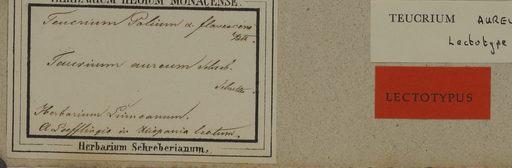 HERBARIUM REGIUM MONACENSE.
Teucrium Polium α flavescens
Teucrium aureum Schreb.
Herbarium Linneanum.
a Loefflingio in Hispania lectum.
Herbarium Schreberianum.
TEUCRIUM AUREU
Lectotype
LECTOTYPUS